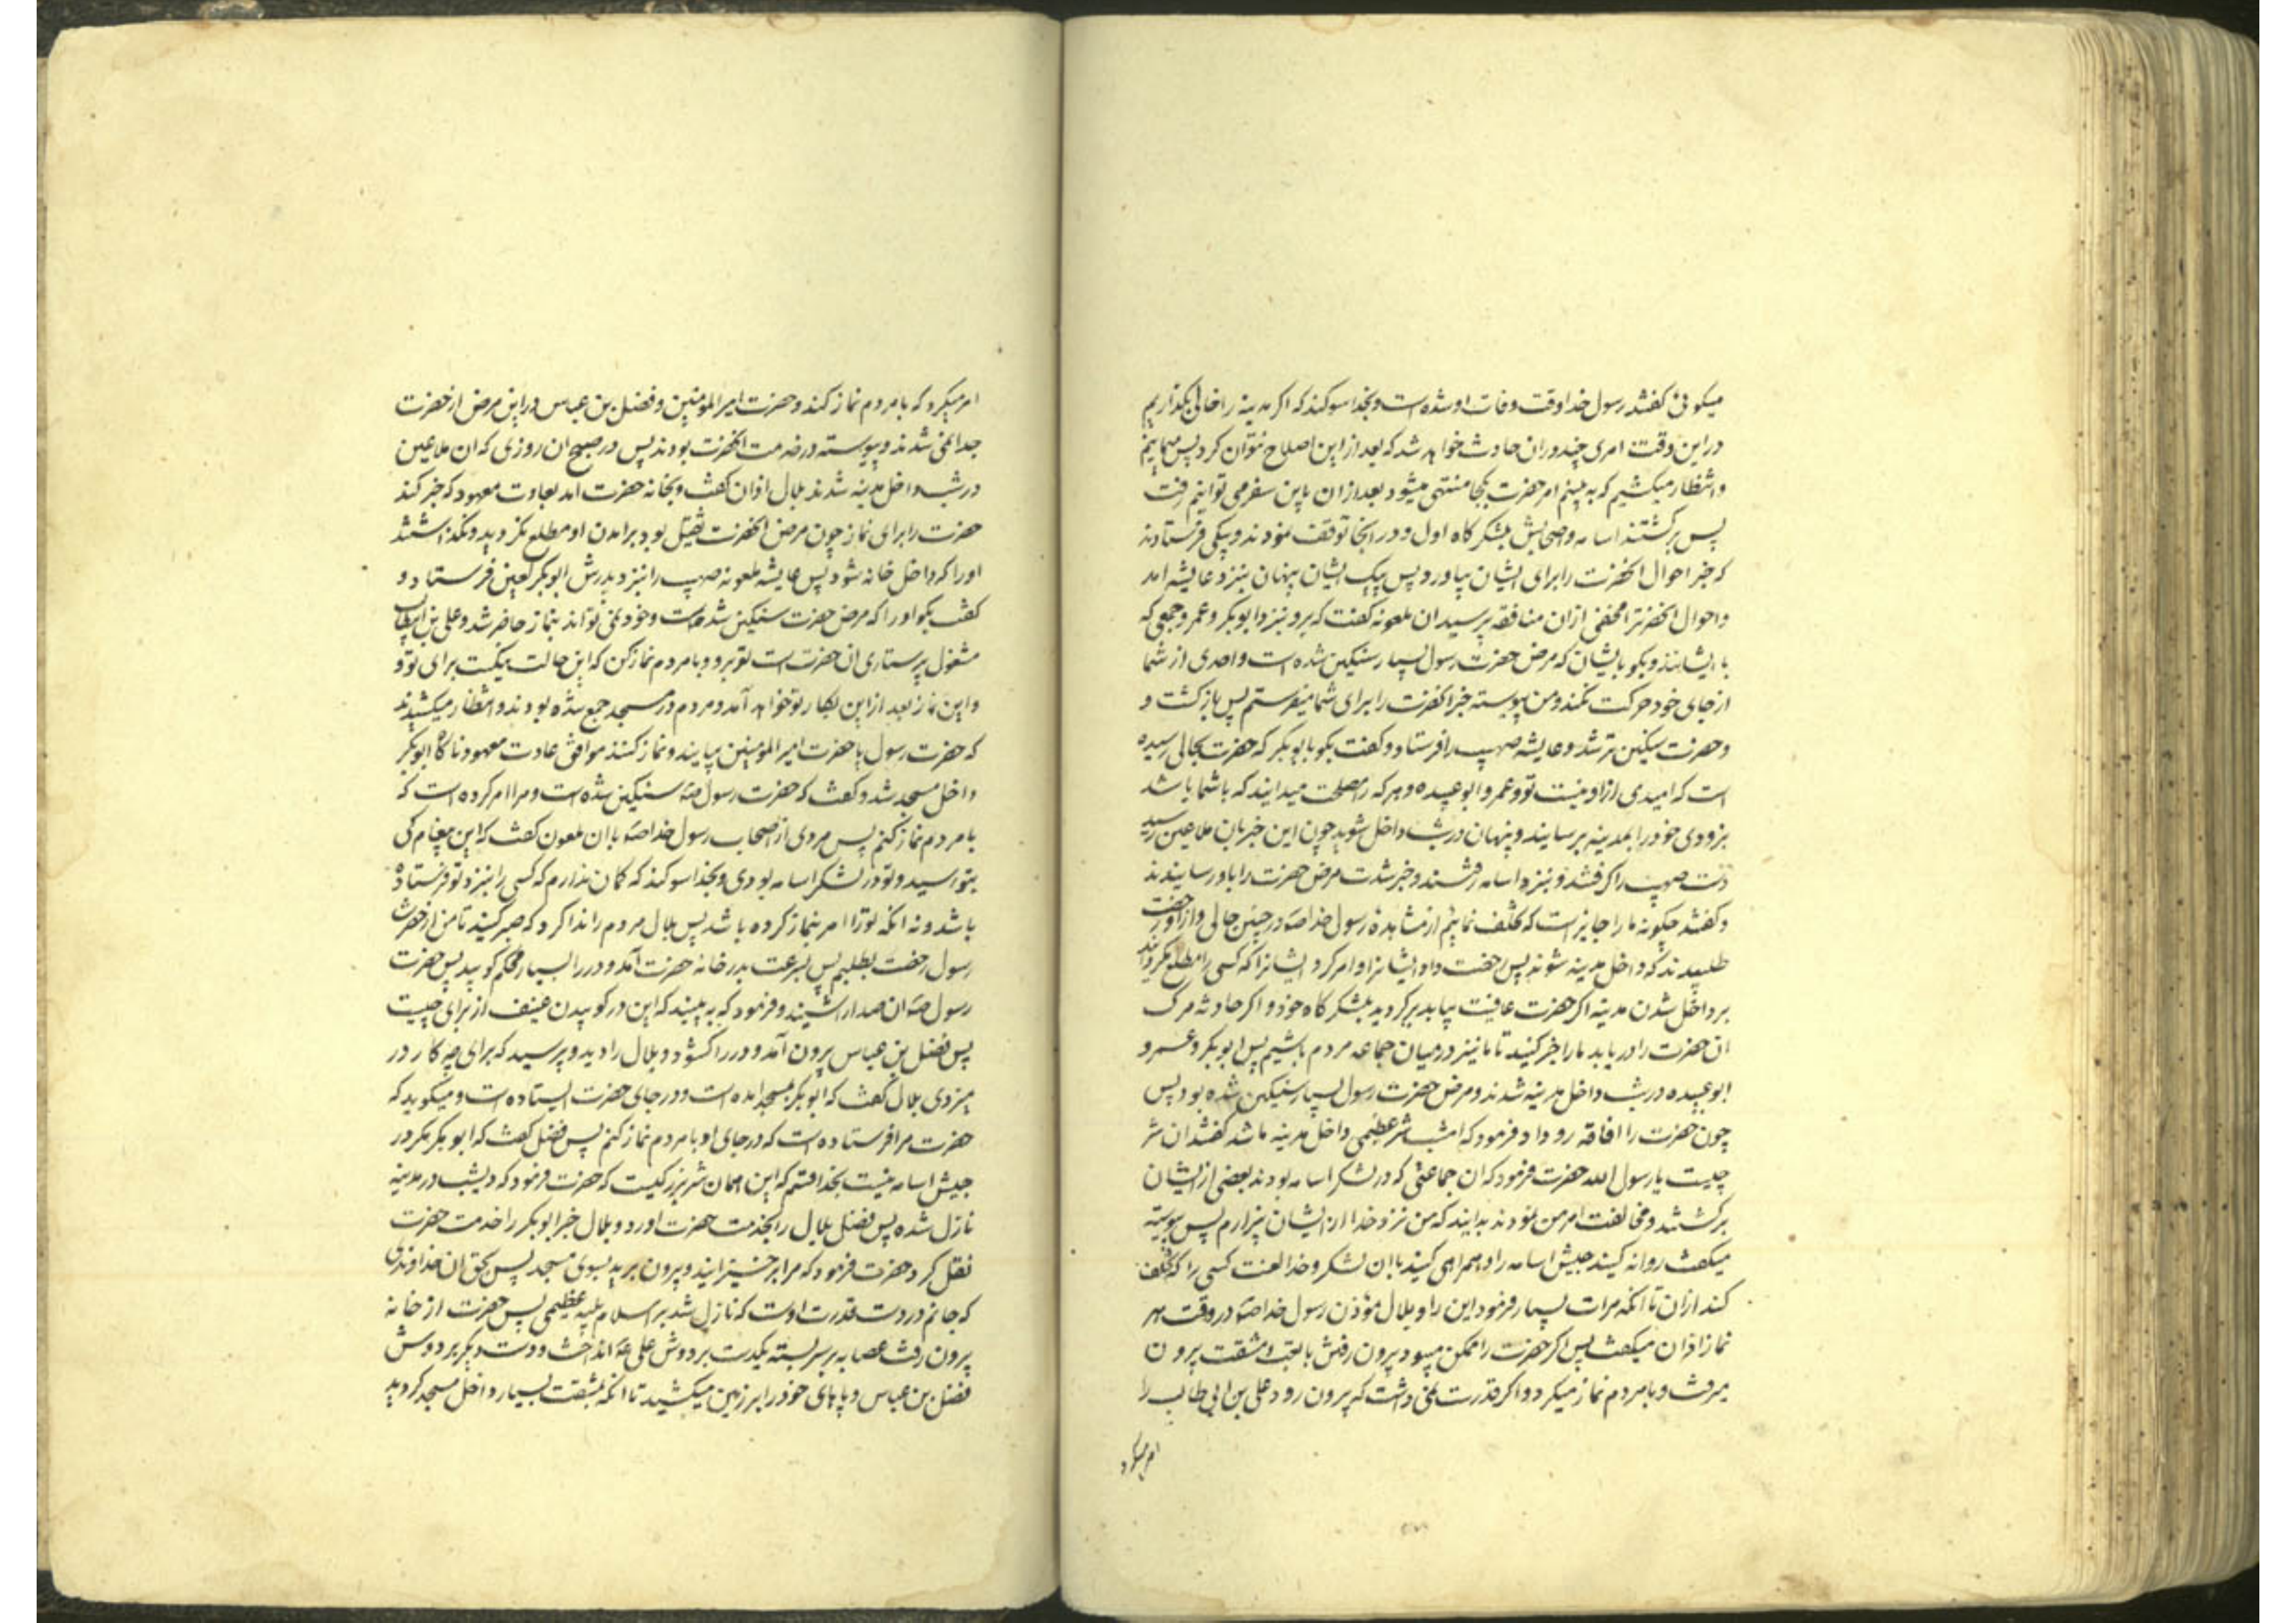 میکوئی کفتند رسول خدا وقت وفات او شده است و بخدا سوکند که اکر مدینه را خالی بکذاریم
در این وقت امری چند در ان حادث خواهد شد که بعد از این اصلاح نتوان کرد پس میمانیم
و انتظار میکشیم که به بینیم امر حضرت بکجا منتهی میشود بعد از ان باین سفر می توانیم رفت
پس برکشتند اسامه و صحابش بلشکرکاه اول و در انجا توقف نمودند و پیکی فرستادند
که خبر احوال انحضرت را برای ایشان بیاورد پس پیک ایشان پنهان بنزد عایشه امد
و احوال انحضرترا مخفی از ان منافقه پرسید ان ملعونه کفت که برو بنزد ابوبکر و عمر و جمعی که
با ایشانند و بکو بایشان که مرض حضرت رسول بسیار سنکین شده است و احدی از شما
از جای خود حرکت نکند و من پیوسته خبر انحضرت را برای شما میفرستم پس بازکشت و
و حضرت سنکین تر شد و عایشه صهیب را فرستاد و کفت بکو بابوبکر که حضرت بحالی رسیده
است که امیدی از او نیست تو و عمر و ابوعبیده و هر که را مصلحت میدانید که با شما باشد
بزودی خود را بمدینه برسانید و پنهان در شب داخل شوید چون این خبر بان ملاعین رسید
دست صهیب را کرفتند و بنزد اسامه رفتند و خبر شدت مرض حضرت را باو رسانیدند
و کفتند چکونه ما را جایز است که تخلف نمائیم از مشاهدهٔ رسول خدا صه در چنین حالی و از او رخصت
طلبیدند که داخل مدینه شوند پس رخصت داد ایشانرا و امر کرد ایشانرا که کسی را مطلع نکردانند
بر داخل شدن مدینه اکر حضرت عافیت بیابد برکردید بلشکرکاه خود و اکر حادثه مرک
ان حضرت را دریابد ما را خبر کنید تا ما نیز در میان جماعه مردم باشیم پس ابوبکر و عمر و
ابوعبیده در شب داخل مدینه شدند و مرض حضرت رسول بسیار سنکین شده بود پس
چون حضرت را افاقه رو داد فرمود که امشب شر عظیمی داخل مدینه ما شد کفتند ان شر
چیست یا رسول الله حضرت فرمود که ان جماعتی که در لشکر اسامه بودند بعضی از ایشان
برکشتند و مخالفت امر من نمودند بدانید که من نزد خدا از ایشان بیزارم پس پیوسته
میکفت روانه کنید جیش اسامه را و همراهی کنید با ان لشکر و خدا لعنت کند کسی را که تخلف
کند از ان تا انکه مرات بسیار فرمود این را و بلال مؤذن رسول خدا صه در وقت هر
نماز اذان میکفت پس اکر حضرت را ممکن میبود بیرون رفتن با تعب و مشقت بیرون
میرفت و با مردم نماز میکرد و اکر قدرت نمی داشت که بیرون رود علی بن ابی طالب را
امر میکرد
امر میکرد که با مردم نماز کند و حضرت امیر المؤمنین و فضل بن عباس در این مرض از حضرت
جدا نمی شدند و پیوسته در خدمت انحضرت بودند پس در صبح ان روزی که ان ملاعین
در شب داخل مدینه شدند بلال اذان کفت و بخانه حضرت امد بعادت معهود که خبر کند
حضرت را برای نماز چون مرض انحضرت ثقیل بود بر امدن او مطلع نکردید و نکذاشتند
او را که داخل خانه شود پس عایشه ملعونه صهیب را بنزد پدرش ابوبکر لعین فرستاد و
کفت بکو او را که مرض حضرت سنکین شده است و خود نمی تواند بنماز حاضر شد و علی بن ابیطالب
مشغول پرستاری ان حضرت است تو برو و با مردم نماز کن که این حالت نیکست برای تو و
و این نماز بعد از این بکار تو خواهد آمد و مردم در مسجد جمع شده بودند و انتظار میکشیدند
که حضرت رسول یا حضرت امیر المؤمنین بیایند و نماز کنند موافق عادت معهود ناکاه ابوبکر
داخل مسجد شد و کفت که حضرت رسول صه سنکین شده است و مرا امر کرده است که
با مردم نماز کنم پس مردی از اصحاب رسول خدا صه با ان ملعون کفت که این پیغام کی
بتو رسید و تو در لشکر اسامه بودی و بخدا سوکند که کمان ندارم که کسی را بنزد تو فرستاده
باشد و نه انکه تو را امر بنماز کرده باشد پس بلال مردم را ندا کرد که صبر کنید تا من از حضرت
رسول رخصت بطلبم پس بسرعت بدر خانه حضرت آمد و در را بسیار محکم کوبید پس حضرت
رسول صه ان صدا را شنید و فرمود که به بینید که این در کوبیدن عنیف از برای چیست
پس فضل بن عباس بیرون آمد و در را کشود و بلال را دید و پرسید که برای چه کار در
میزدی بلال کفت که ابوبکر بمسجد امده است و در جای حضرت ایستاده است و میکوید که
حضرت مرا فرستاده است که در جای او با مردم نماز کنم پس فضل کفت که ابوبکر مکر در
جیش اسامه نیست بخدا قسم که این همان شر بزرکیست که حضرت فرمود که دیشب در مدینه
نازل شده پس فضل بلال را بخدمت حضرت اورد و بلال خبر ابوبکر را خدمت حضرت
نقل کرد حضرت فرمود که مرا برخیزانید و بیرون برید بسوی مسجد پس بحق ان خداوندی
که جانم در دست قدرت اوست که نازل شد بر اسلام بلیه عظیمی پس حضرت از خانه
بیرون رفت عصابه بر سر بسته یکدست بر دوش علی عه انداخت و دست دیکر بر دوش
فضل بن عباس و پاهای خود را بر زمین میکشید تا انکه بمشقت بسیار داخل مسجد کردید